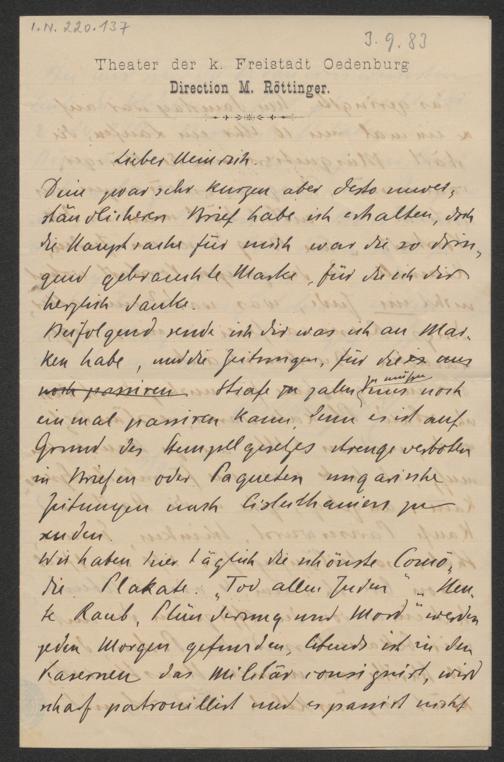 I.N. 220.137
3.9.83
Theater der k. Freistadt Oedenburg
Direction M. Röttinger.
Lieber Heinrich.
Dein zwar sehr kurzen aber desto unver,
ständlicheren Brief habe ich erhalten, doch
die Hauptsache für mich war die so drin,
gend gebrauchte Marke, für die ich dir
herzlich danke.
Beifolgend sende ich dir was ich an Mar,
ken habe, und die Zeitungen, für die es uns
noch passiren Strafe zu zalen zu müssen noch
einmal passiren kann, denn es ist auf
Grund des Stempelgesetzes strenge verboten
in Briefen oder Paqueten ungarische
Zeitungen nach Cisleithanien zu
senden.
Wir haben hier täglich die schönste Comö,
die Plakate. „Tod allen Juden" „Heu,
te Raub, Plünderung und Mord" werden
jeden Morgen gefunden, Abends ist in den
Kasernen das Militär consignirt, wird
scharf patrouillirt und es passirt nicht